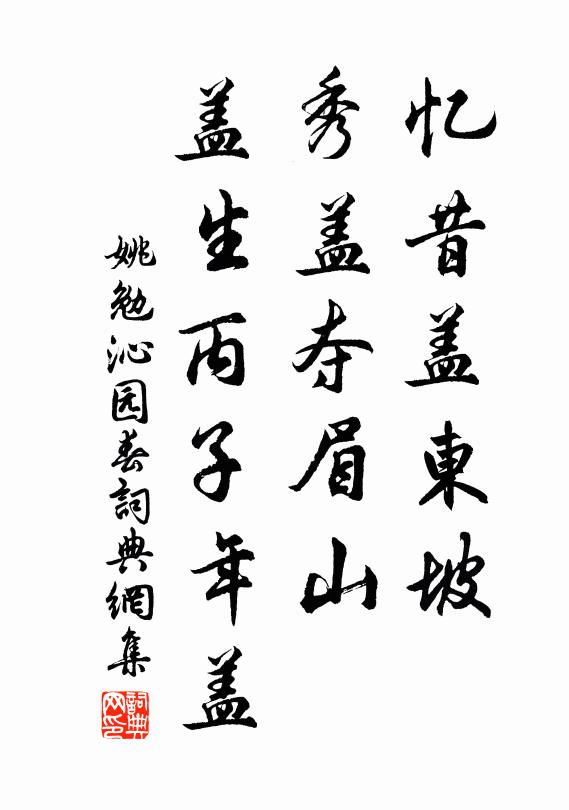 忆昔盖東坡
秀盖夺眉山
盖生丙子年盖
姚勉沁园春詞典網集
詞典网印